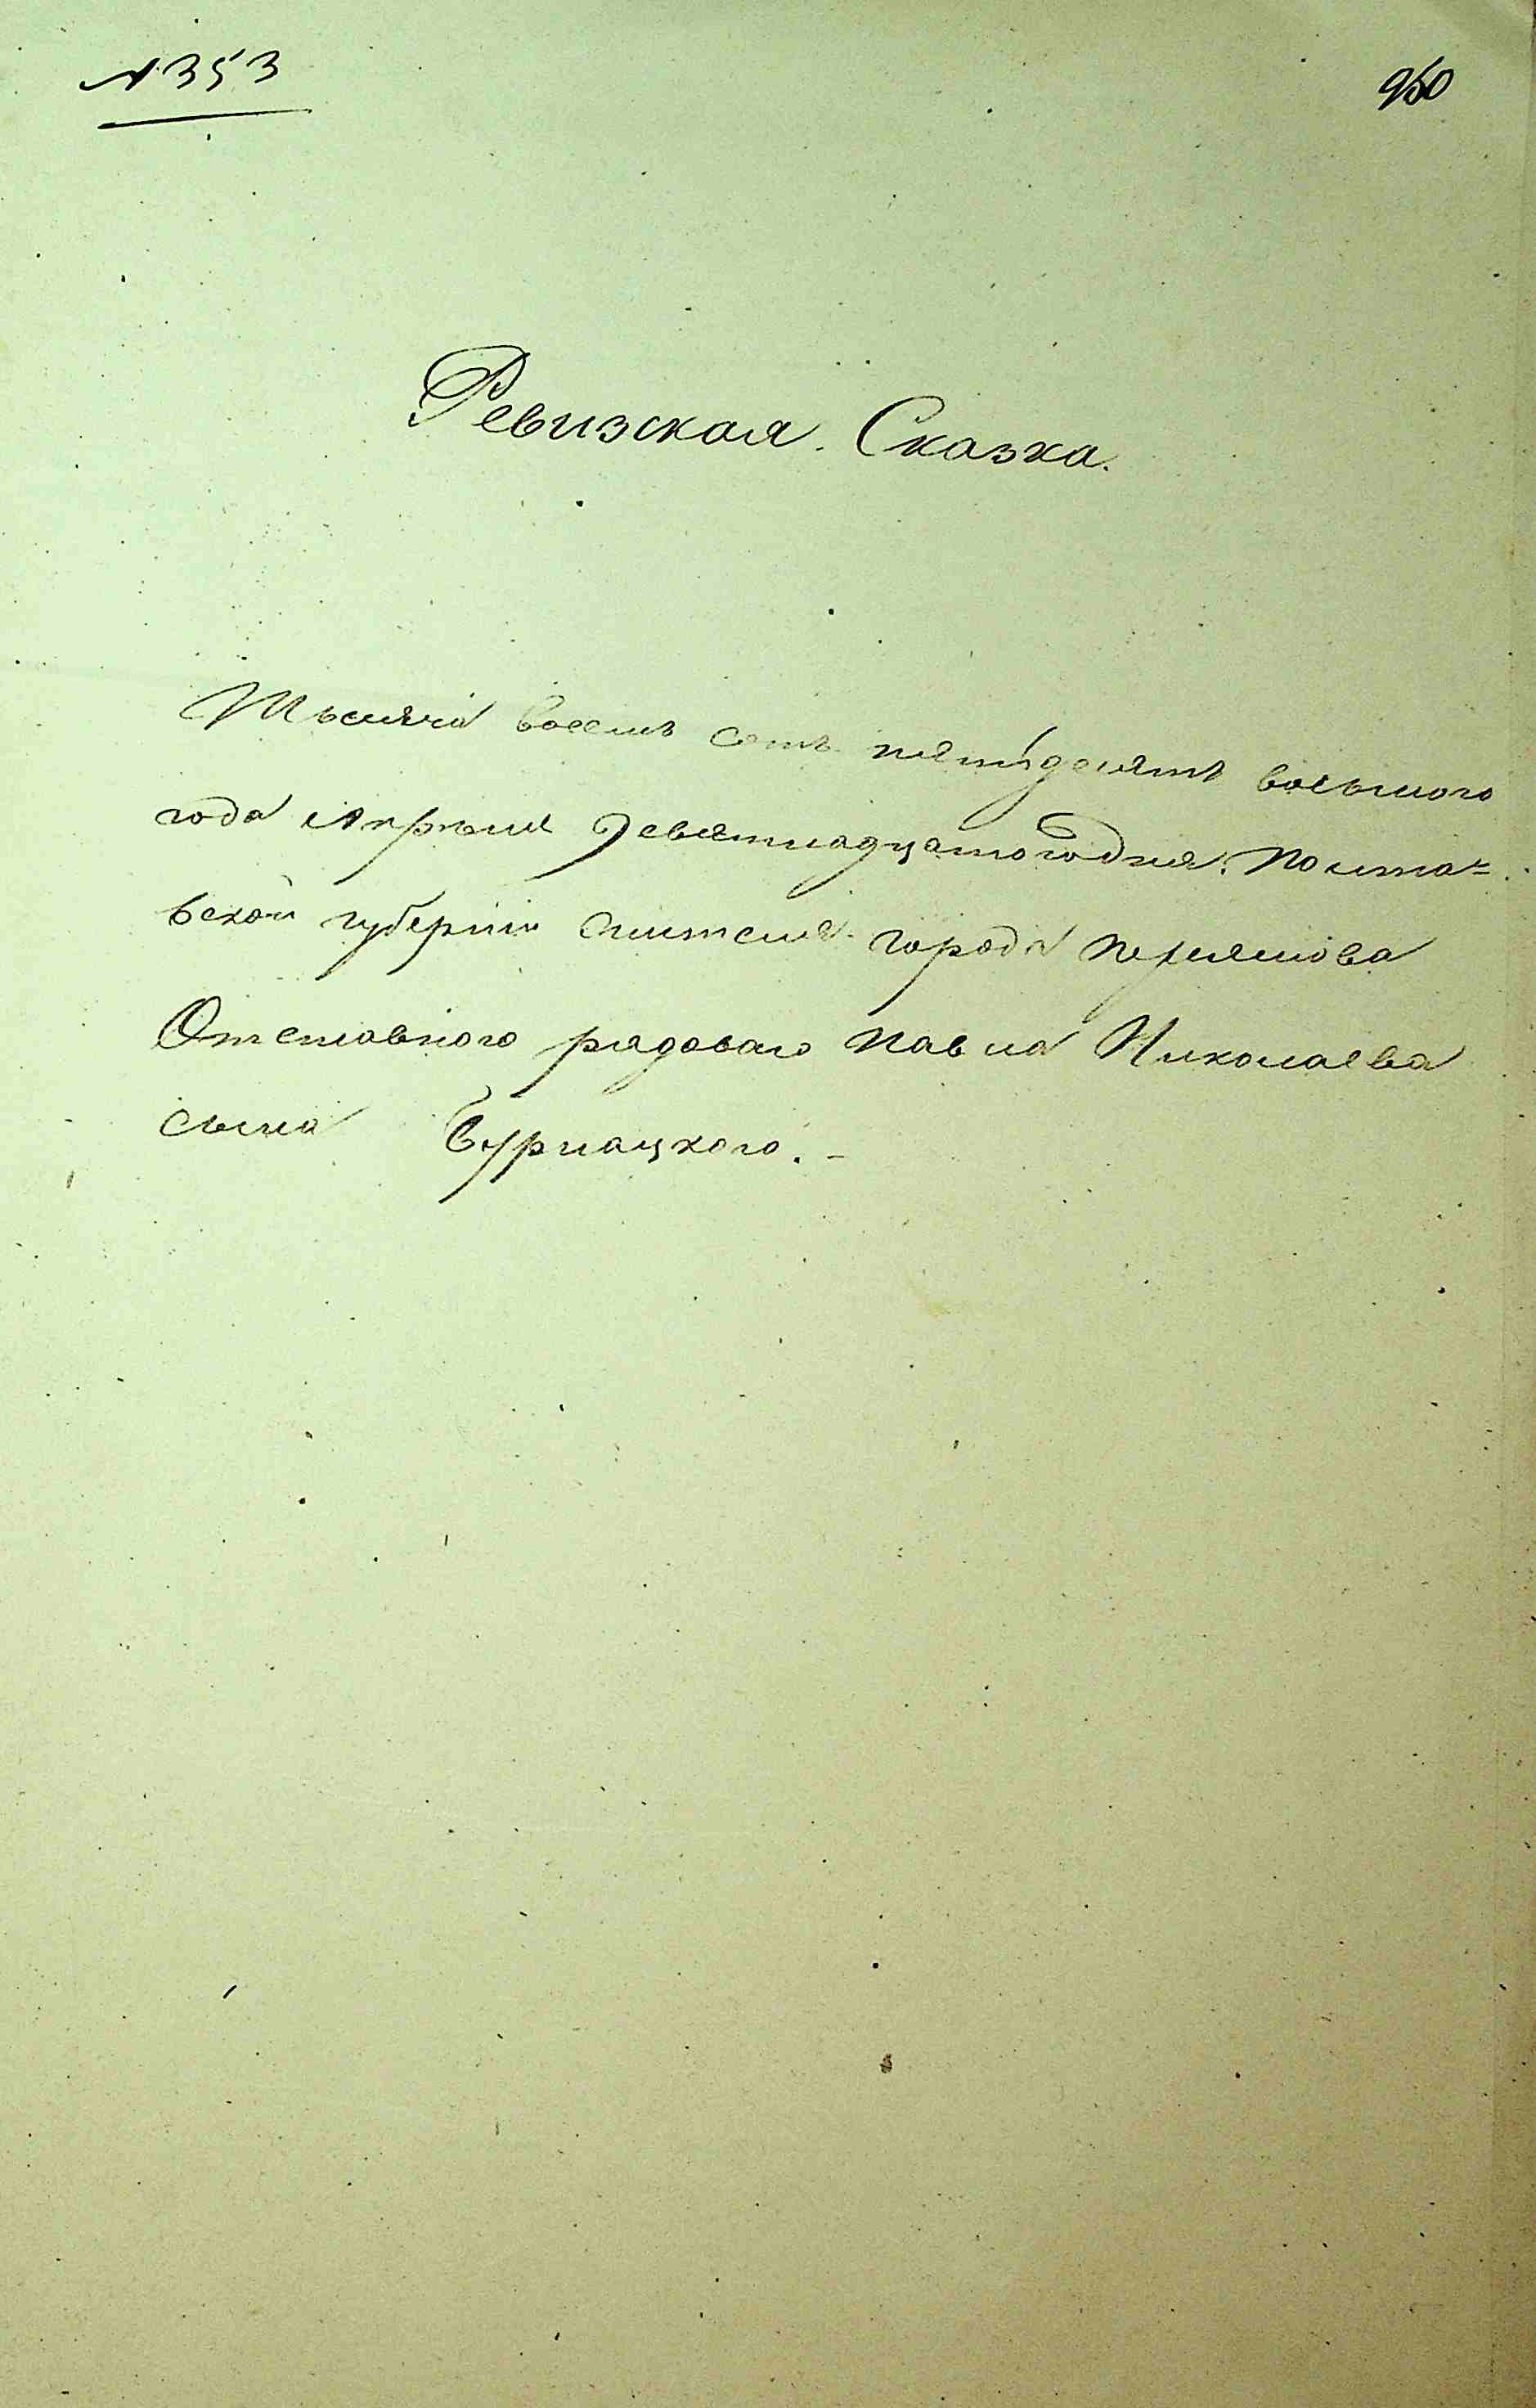 № 353
950
Ревизская. Сказка.
Тысяча восемь сотъ пятьдесятъ восьмого
года Апрѣля Девятнадцатого дня. Полта=
вской губерніи жителя города
Отставного рядоваго Павла Николаева
сына Бурнацкого. -